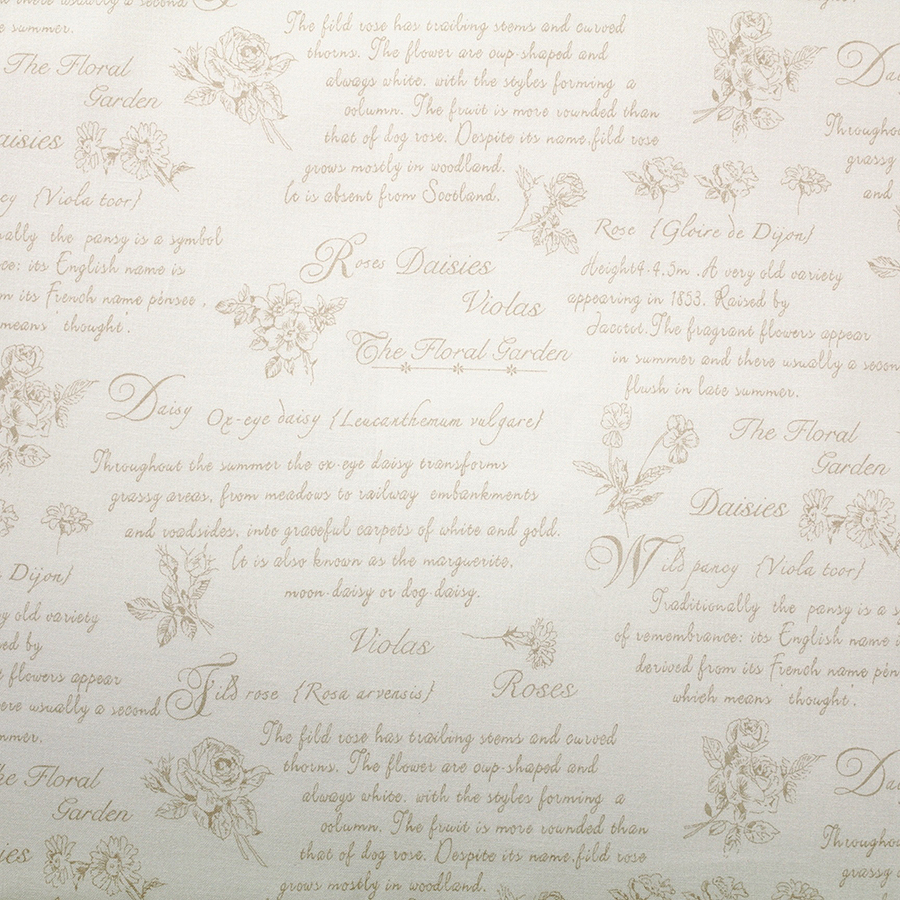 ere usually a second
e summer.
The Floral
Garden
aisies
cy {Viola tcor}
nally the pansy is a symbol
ce: its English name is
m its French name pensee,
means 'thought'.
The fild rose has trailing stems and curved
thorns. The flower are oup-shaped and
always white. with the styles forming a
oolumn. The fruit is more rounded than
that of dog rose. Despite its name,fild rose
grows mostly in woodland.
It is absent from Scotland.
Roses Daisies
Violas
The Floral Garden
Rose {Gloire de Dijon}
Height4-4.5m .A very old variety
appearing in 1853. Raised by
Jacotot.The fragrant flowers appear
in summer and there usually a secon
flush in late summer.
Da
Throughou
grassy
and
Daisy Ox-eye daisy {Leucanthemum vulgare}
Throughout the summer the ox-eye daisy transforms
grassy areas, from meadows to railway embankments
and roadsides, into graceful carpets of white and gold.
It is also known as the marguerite,
moon-daisy or dog-daisy.
The Floral
Garden
Daisies
Wild pancy {Viola tcor}
Traditionally the pansy is a s
of remembrance: its English name i
derived from its French name pén
which means 'thought'.
Dijon}
y old variety
ed by
flowers appear
ere usually a second
mmer.
Violas
Roses
Fild rose {Rosa arvensis}
The fild rose has trailing stems and curved
thorns. The flower are oup-shaped and
always white. with the styles forming a
oolumn. The fruit is more rounded than
that of dog rose. Despite its name,fild rose
grows mostly in woodland.
he Floral
Garden
ies
Da
Througho
grassy